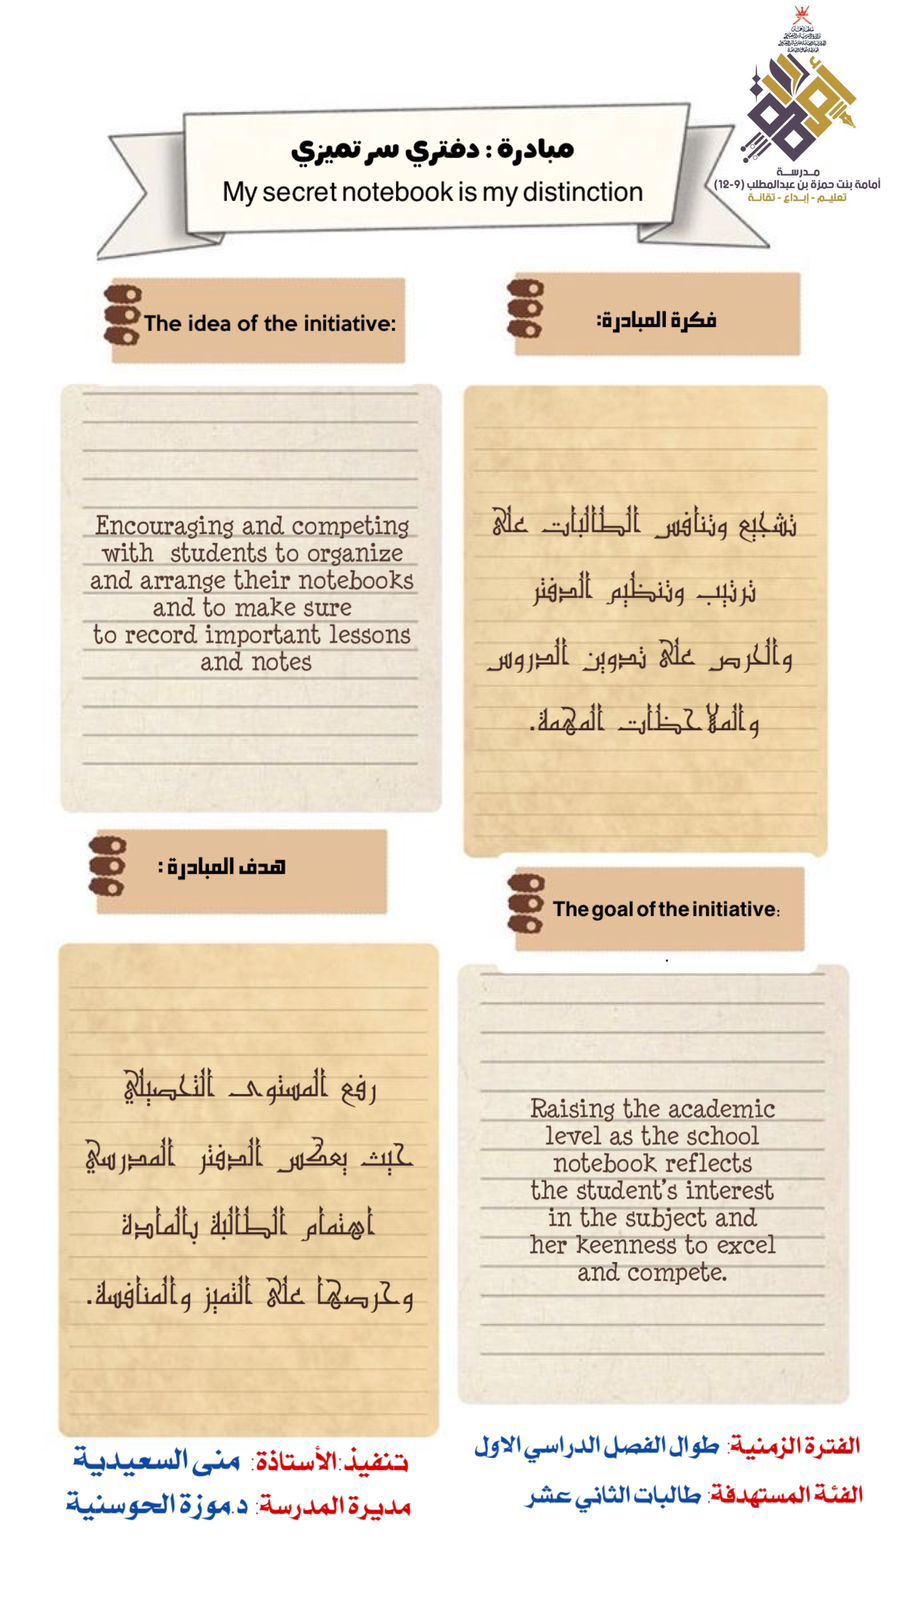 مدرسة
أمامة بنت حمزة بن عبدالمطلب (9-12)
تعليم - إبداع - تقانة
مبادرة : دفتري سر تميزي
My secret notebook is my distinction
فكرة المبادرة:
The idea of the initiative:
تشجيع وتنافس الطالبات على
ترتيب وتنظيم الدفتر
والحرص على تدوين الدروس
والملاحظات المهمة.
Encouraging and competing
with students to organize
and arrange their notebooks
and to make sure
to record important lessons
and notes
هدف المبادرة :
The goal of the initiative:
رفع المستوى التحصيلي
حيث يعكس الدفتر المدرسي
اهتمام الطالبة بالمادة
وحرصها على التميز والمنافسة.
Raising the academic
level as the school
notebook reflects
the student's interest
in the subject and
her keenness to excel
and compete.
الفترة الزمنية: طوال الفصل الدراسي الاول
الفئة المستهدفة: طالبات الثاني عشر
تنفيذ:الأستاذة: منى السعيدية
مديرة المدرسة: د.موزة الحوسنية